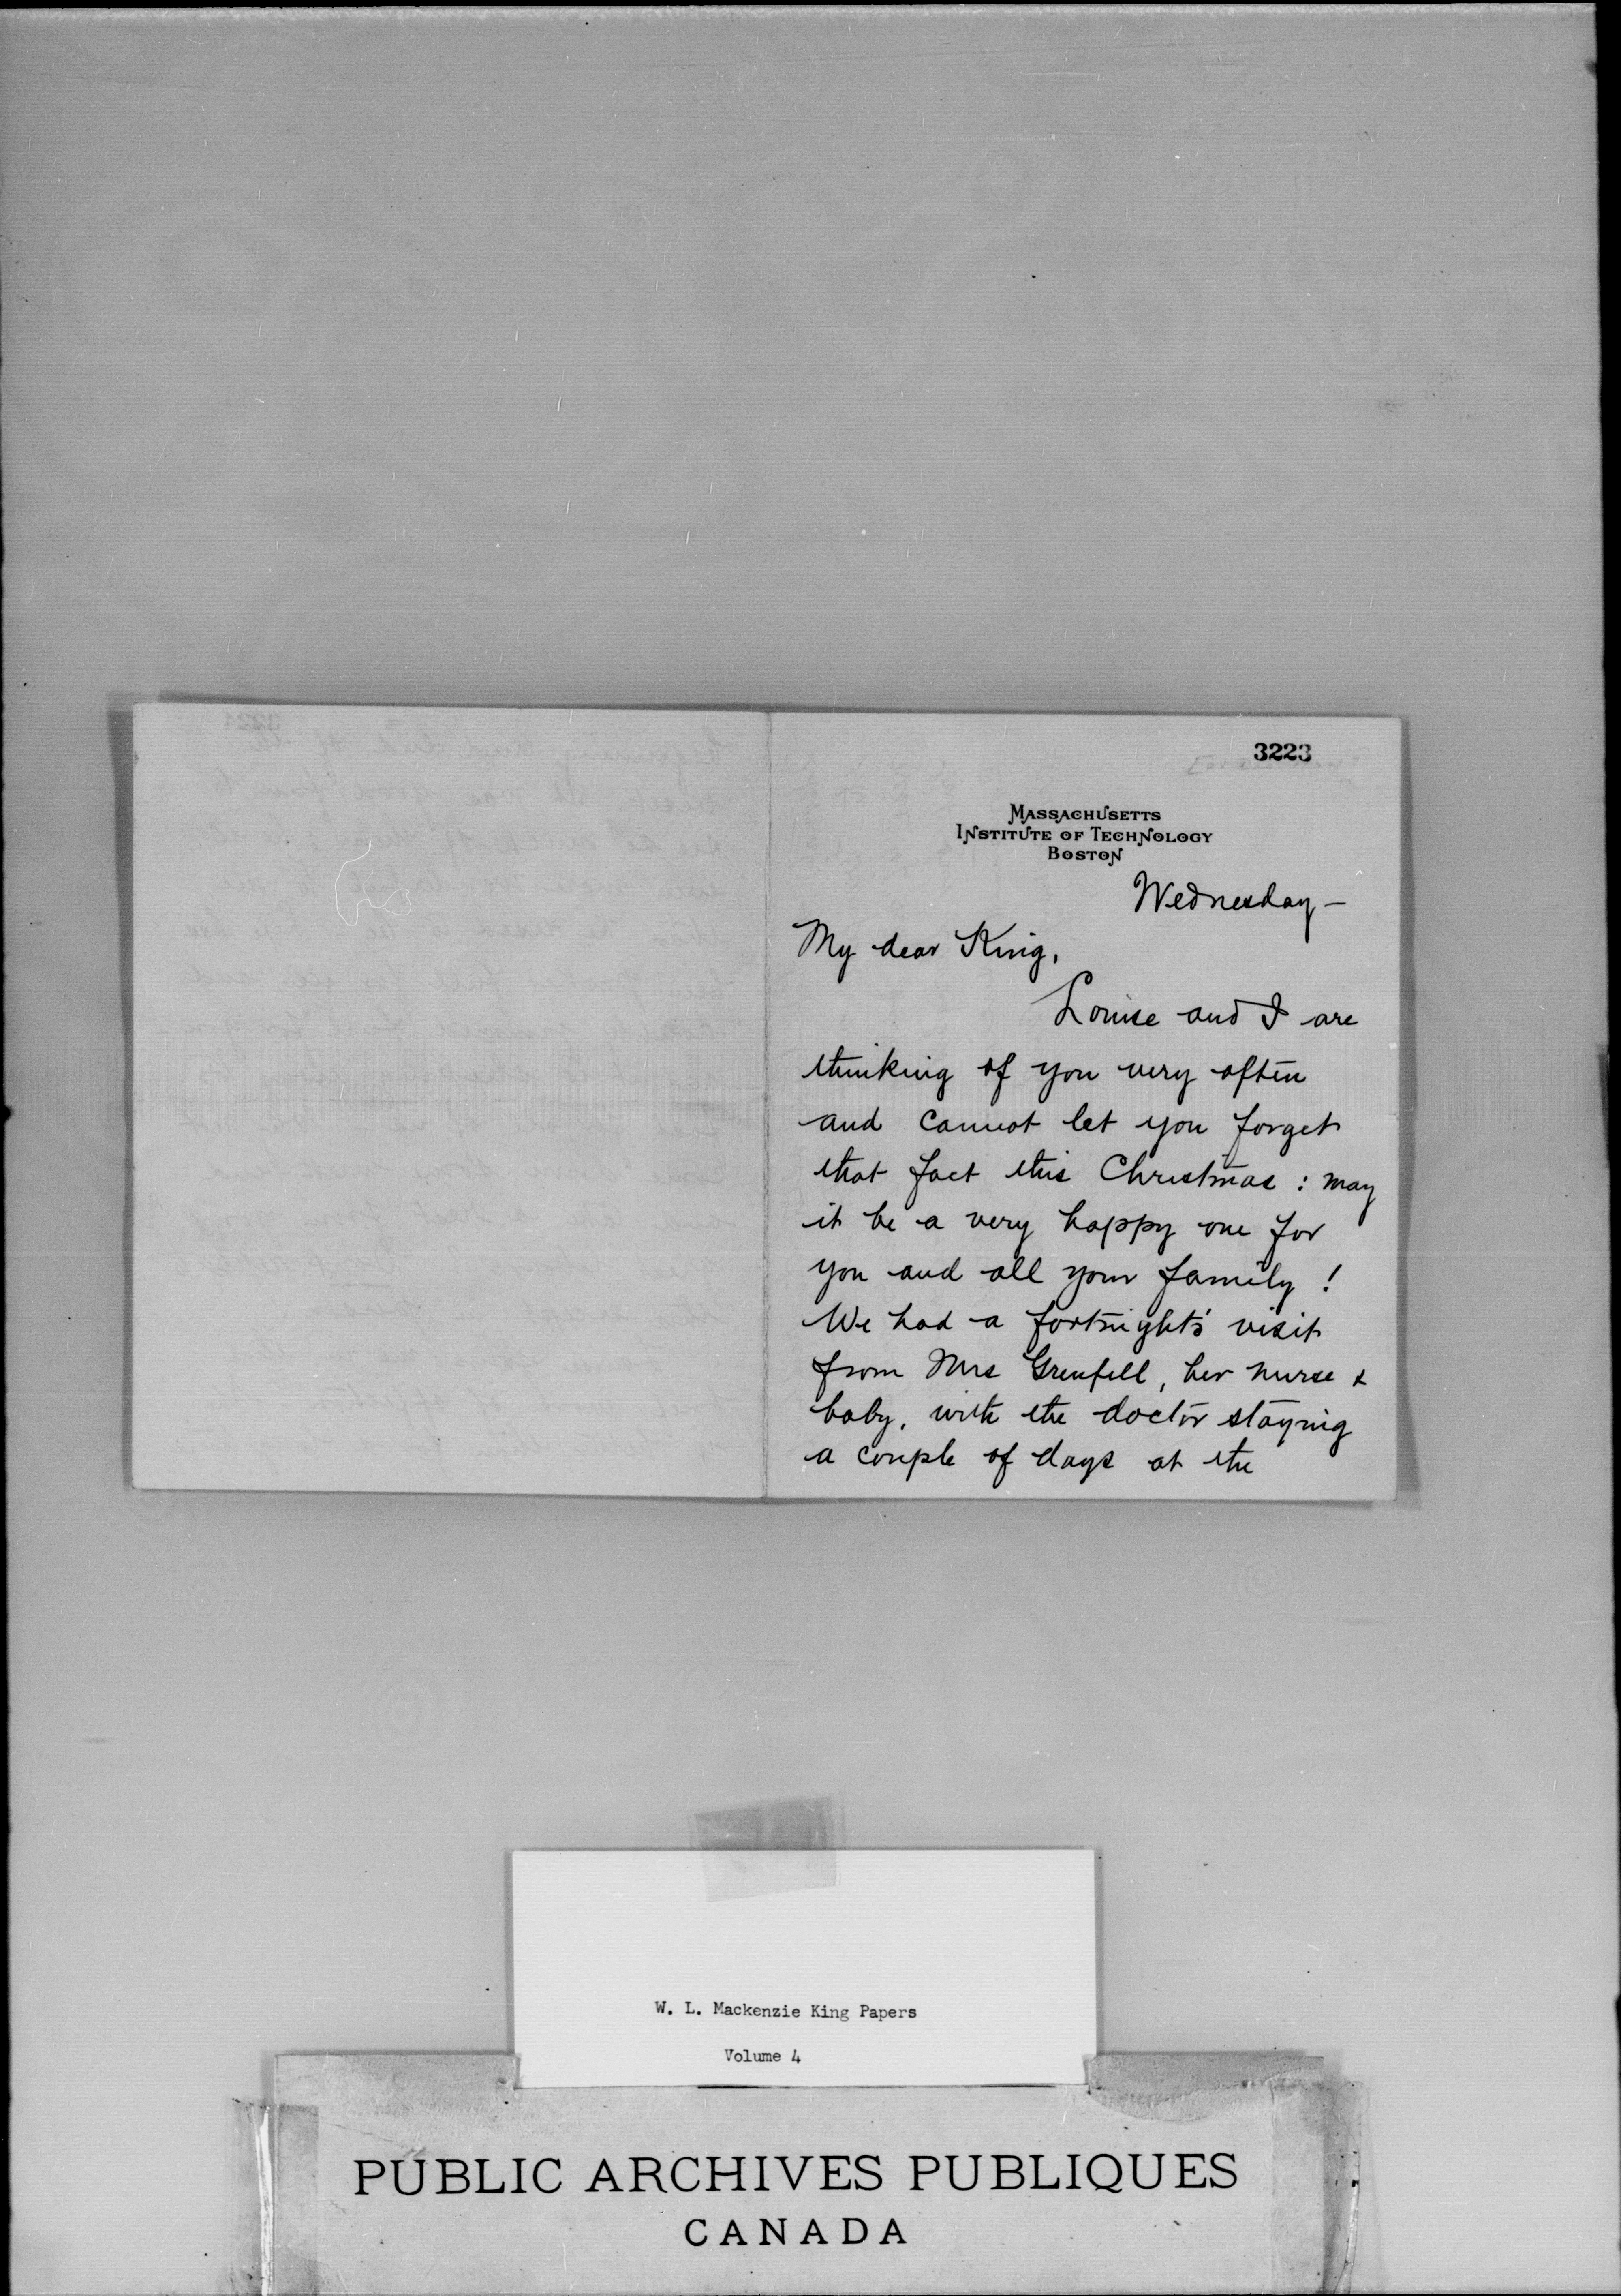 3223
MASSACHUSETTS
INSTITUTE OF TECHNOLOGY
BOSTON
Wednesday —
My dear King,
Louise and I are
thinking of you very often
and cannot let you forget
that fact this Christmas : may
it be a very happy one for
you and all your family !
We had a fortnight's visit
from Mrs Grenfell, her nurse &
baby, with the doctor staying
a couple of days at the
W. L. Mackenzie King Papers
Volume 4
PUBLIC ARCHIVES PUBLIQUES
CANADA